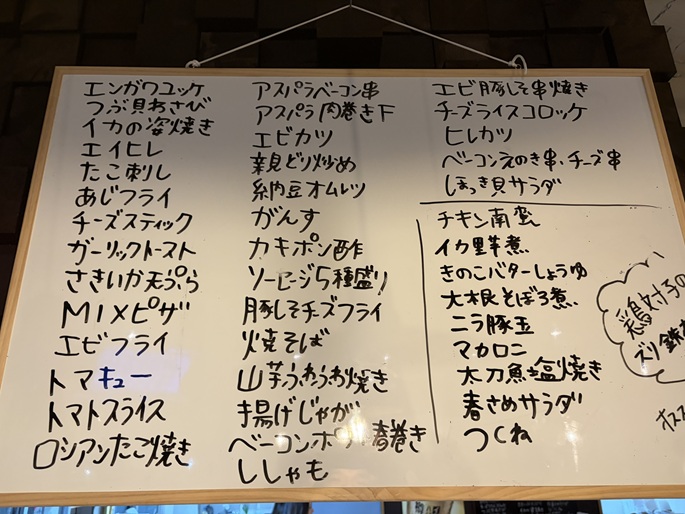 エンガワユッケ
つぶ貝わさび
イカの姿焼き
エイヒレ
たこ刺し
あじフライ
チーズスティック
ガーリックトースト
さきいか天ぷら
MIXピザ
エビフライ
トマキュー
トマトスライス
ロシアンたこ焼き
アスパラベーコン串
アスパラ肉巻きF
エビカツ
親どり炒め
納豆オムレツ
がんす
カキポン酢
ソーセージ5種盛り
豚しそチーズフライ
焼そば
山芋ふわふわ焼き
揚げじゃが
ベーコンポテト春巻き
ししゃも
エビ豚しそ串焼き
チーズライスコロッケ
ヒレカツ
ベーコンえのき串、チーズ串
ほっき貝サラダ
チキン南蛮
イカ里芋煮
きのこバターしょうゆ
大根そぼろ煮
ニラ豚玉
マカロニ
太刀魚塩焼き
春さめサラダ
つくね
ズリ鉄